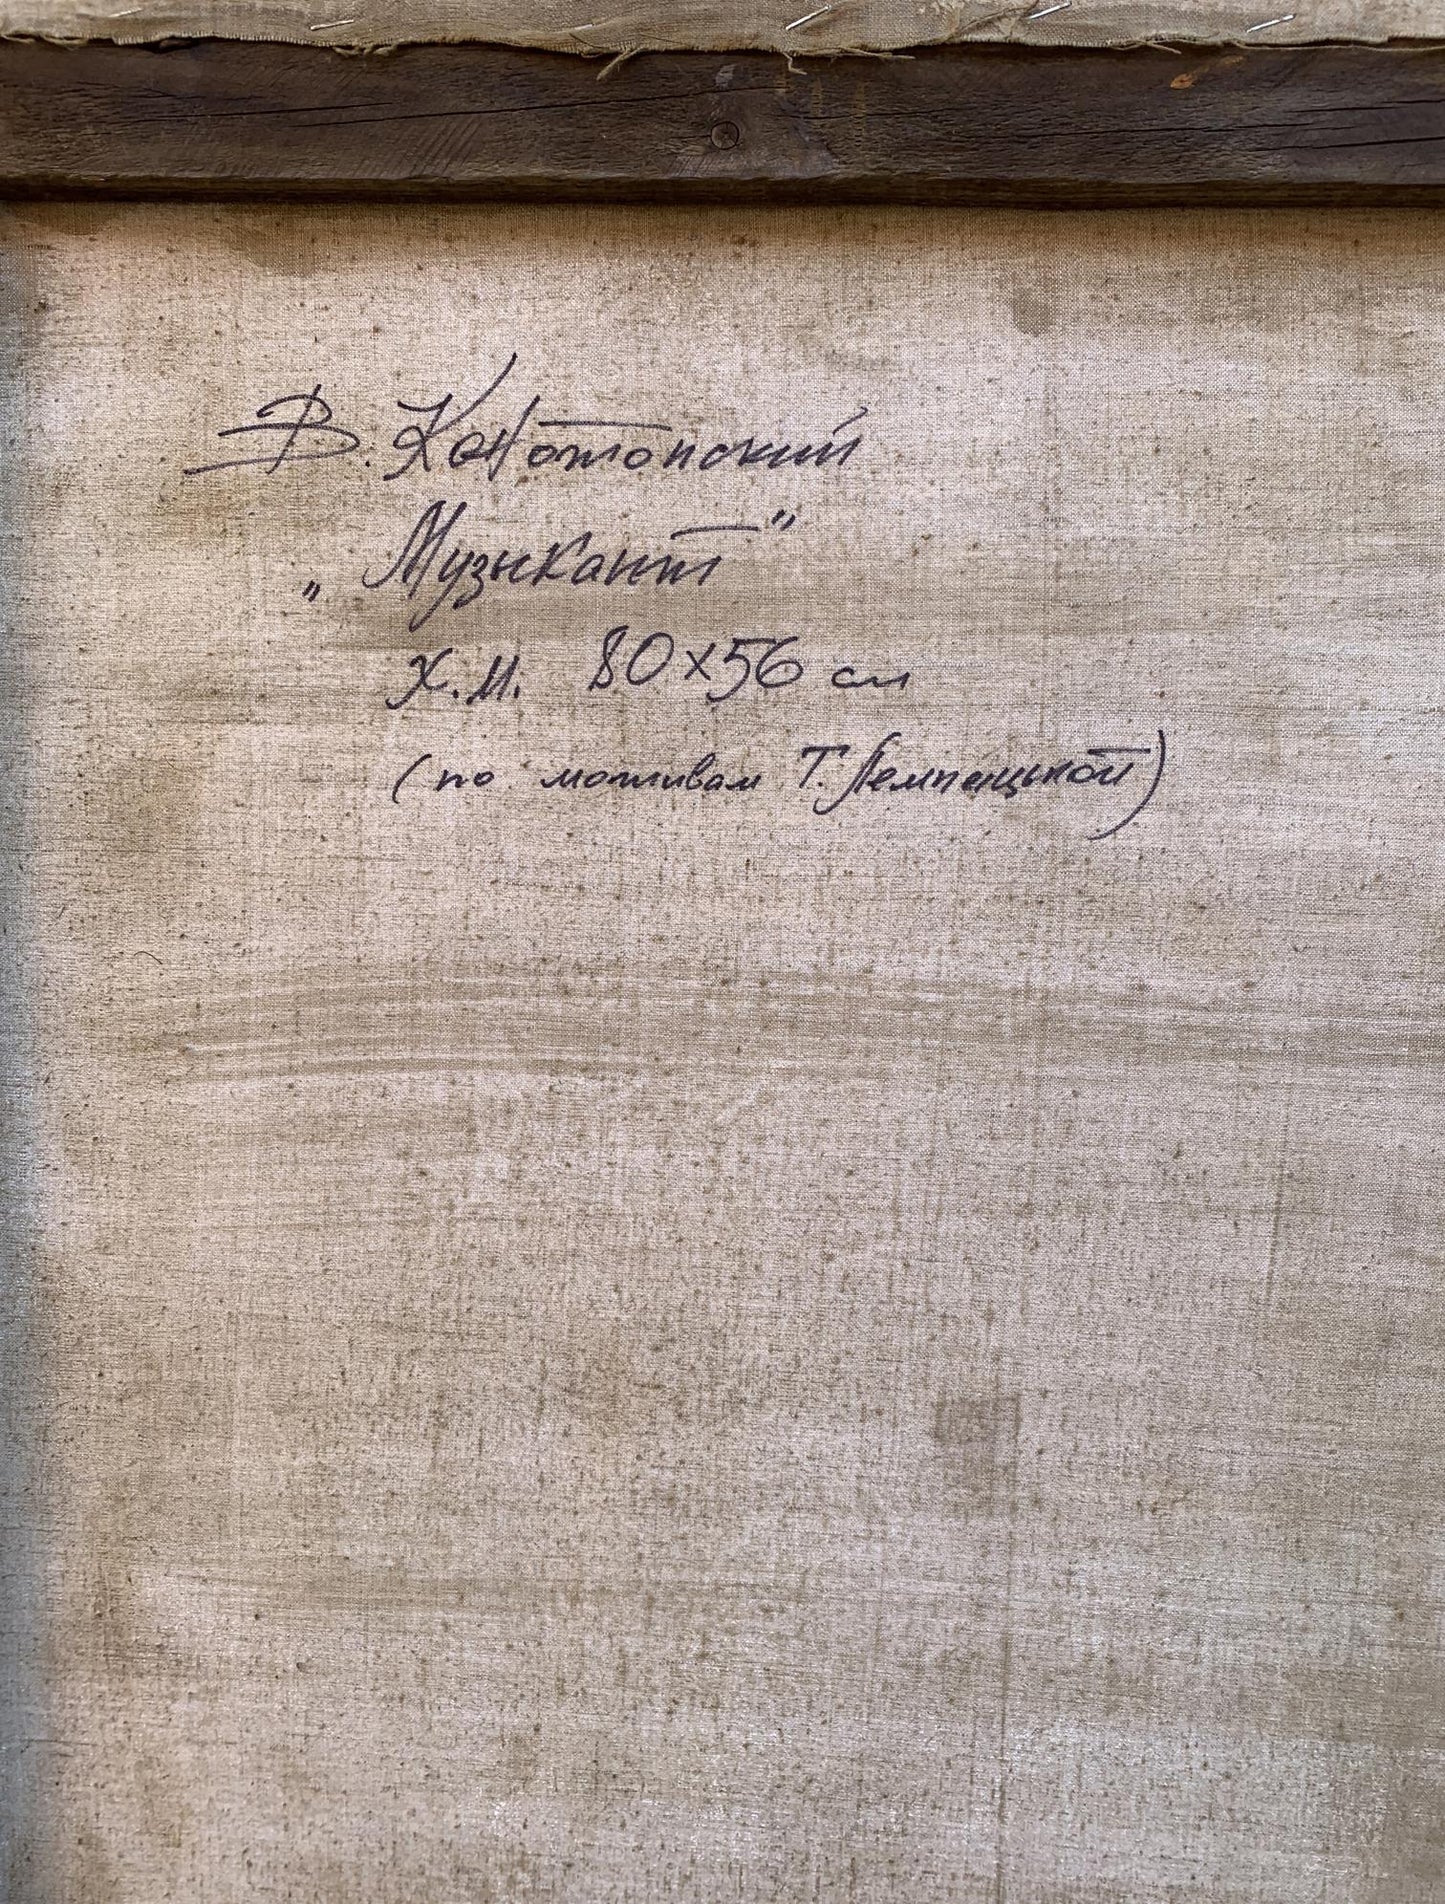 В. Конотопский
„Музыкант"
х.м. 80х56 см
(по мотивам Т. Лемпицкой)